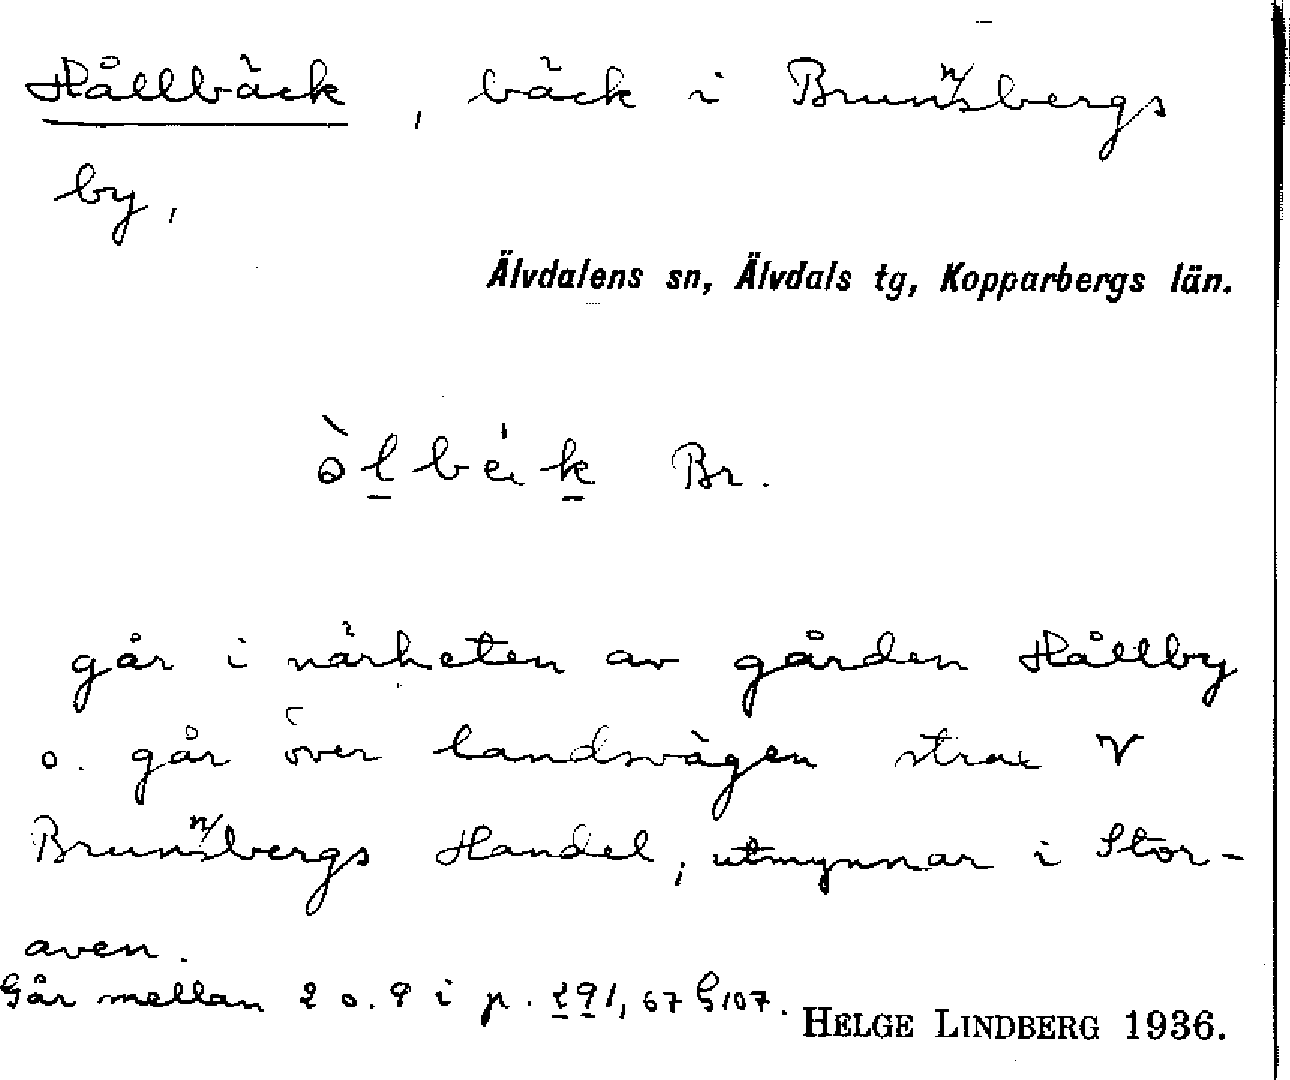 Hållbäck, bäck i Brunnsbergs
by,
Älvdalens sn, Älvdals tg, Kopparbergs län.
Br.
går i närheten av gården Hållby
o. går över landsvägen strax V
Brunnsbergs Handel, utmynnar i Stor-
aven.
Går mellan 2 o. 9 i p.
HELGE LINDBERG 1936.